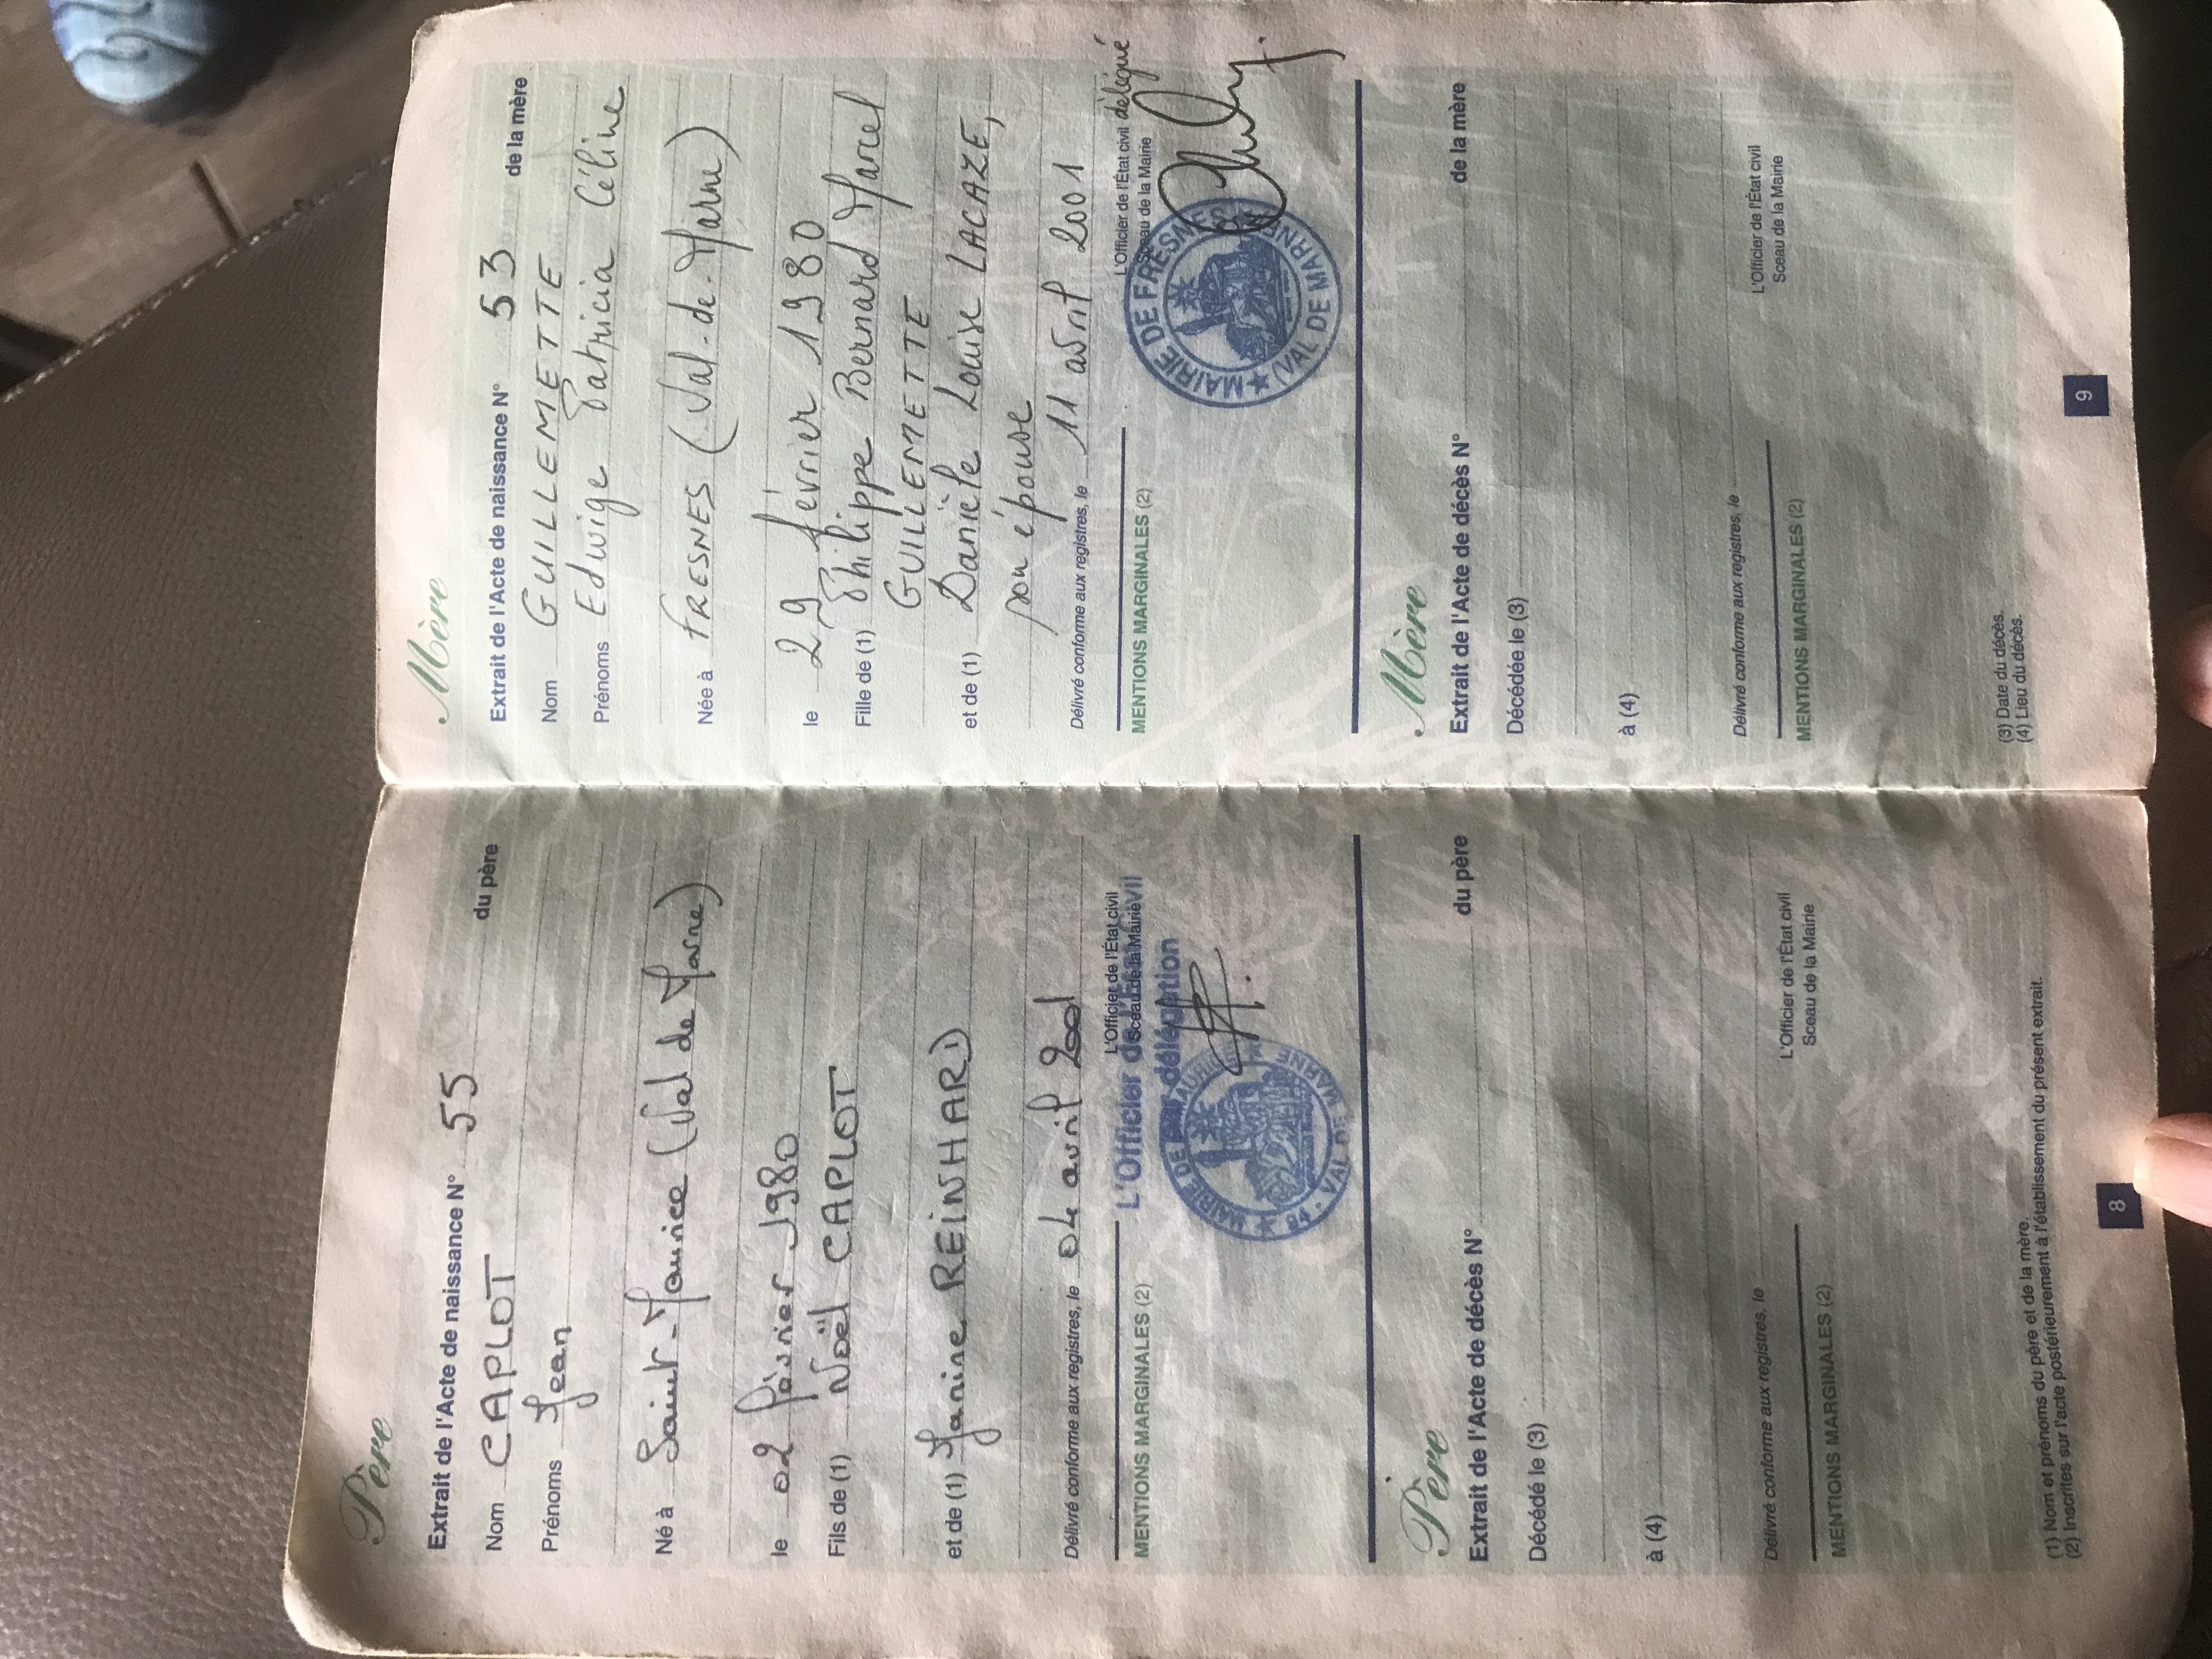 Père
Extrait de l'Acte de naissance N° 55 du père
Nom CAPLOT
Prénoms Jean
Né à Saint-Maurice (Val de Marne)
le 02 février 1980
Fils de (1) Noël CAPLOT
et de (1) Janine REINHARD
Délivré conforme aux registres, le 04 avril 2001
L'Officier de l'État civil
Sceau de la Mairie
MENTIONS MARGINALES (2)
L'Officier de l'État civil
délégation
MAIRIE DE
94 - VAL DE MARNE
Père
Extrait de l'Acte de décès N° du père
Décédé le (3)
à (4)
Délivré conforme aux registres, le
L'Officier de l'État civil
Sceau de la Mairie
MENTIONS MARGINALES (2)
(1) Nom et prénoms du père et de la mère.
(2) Inscrites sur l'acte postérieurement à l'établissement du présent extrait.
8
Mère
Extrait de l'Acte de naissance N° 53 de la mère
Nom GUILLEMETTE
Prénoms Edwige Patricia Céline
Née à FRESNES (Val-de-Marne)
le 29 février 1980
Fille de (1) Philippe Bernard Marcel
GUILLEMETTE
et de (1) Danièle Louise LACAZE,
son épouse
Délivré conforme aux registres, le 11 avril 2001
L'Officier de l'État civil délégué
Sceau de la Mairie
MENTIONS MARGINALES (2)
MAIRIE DE FRESNES
(VAL DE MARNE)
Mère
Extrait de l'Acte de décès N° de la mère
Décédée le (3)
à (4)
Délivré conforme aux registres, le
L'Officier de l'État civil
Sceau de la Mairie
MENTIONS MARGINALES (2)
(3) Date du décès.
(4) Lieu du décès.
9